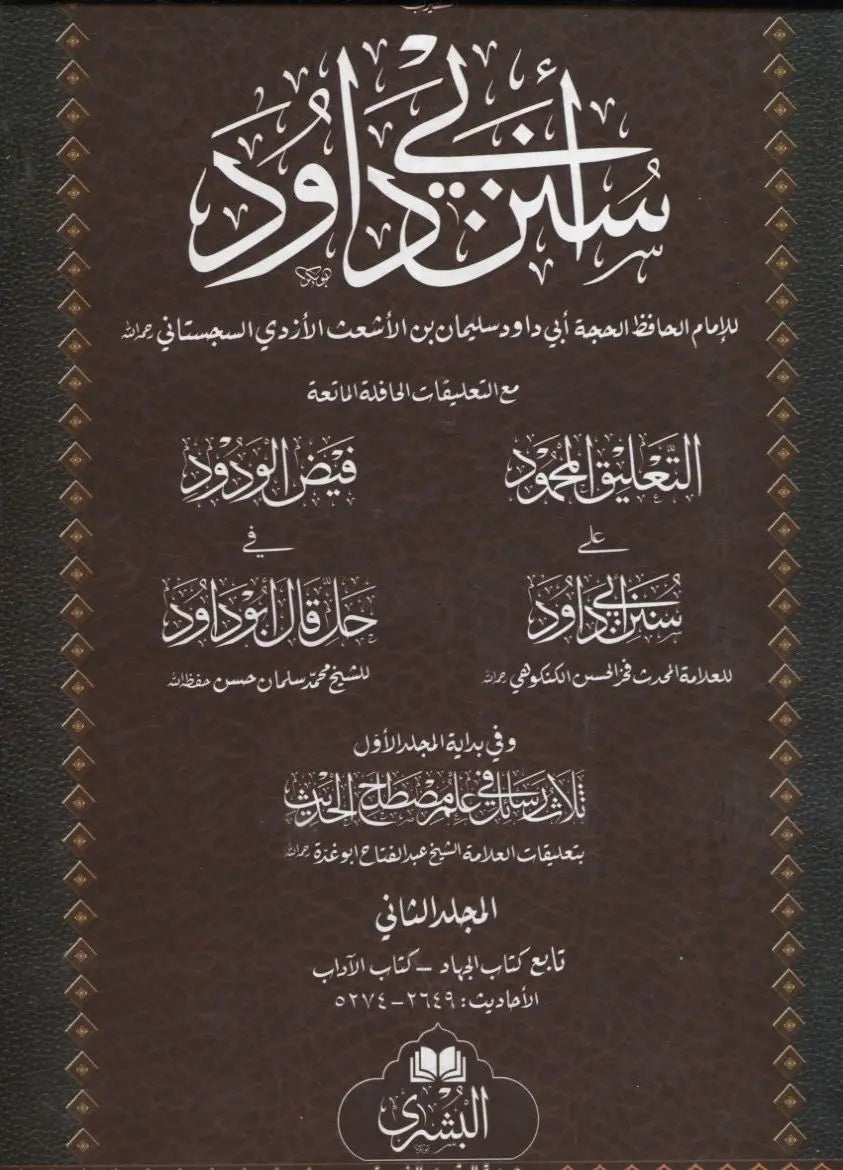 سُنن أبي داوُد
للإمام الحافظ الحجة أبي داود سليمان بن الأشعث الأزدي السجستاني رحمه الله
مع التعليقات الحافلة الماتعة
التَّعْلِيْق المَحْمُوْد
على
سُنَن أَبِي دَاوُد
للعلامة المحدث فخر الحسن الكنكوهي رحمه الله
فَيْض الوَدُوْد
في
حَلِّ قَالَ أَبُوْ دَاوُد
للشيخ محمّد سلمان حسن حفظه الله
وفي بداية المجلد الأوّل
ثَلاث رَسَائل في عِلم مُصْطَلح الحَدِيْث
بتعليقات العلامة الشيخ عبد الفتاح ابو غدّة رحمه الله
المجلد الثاني
تابع كتاب الجهاد – كتاب الآداب
الأحاديث: ٢٦٤٩–٥٢٧٤
البُشْرى